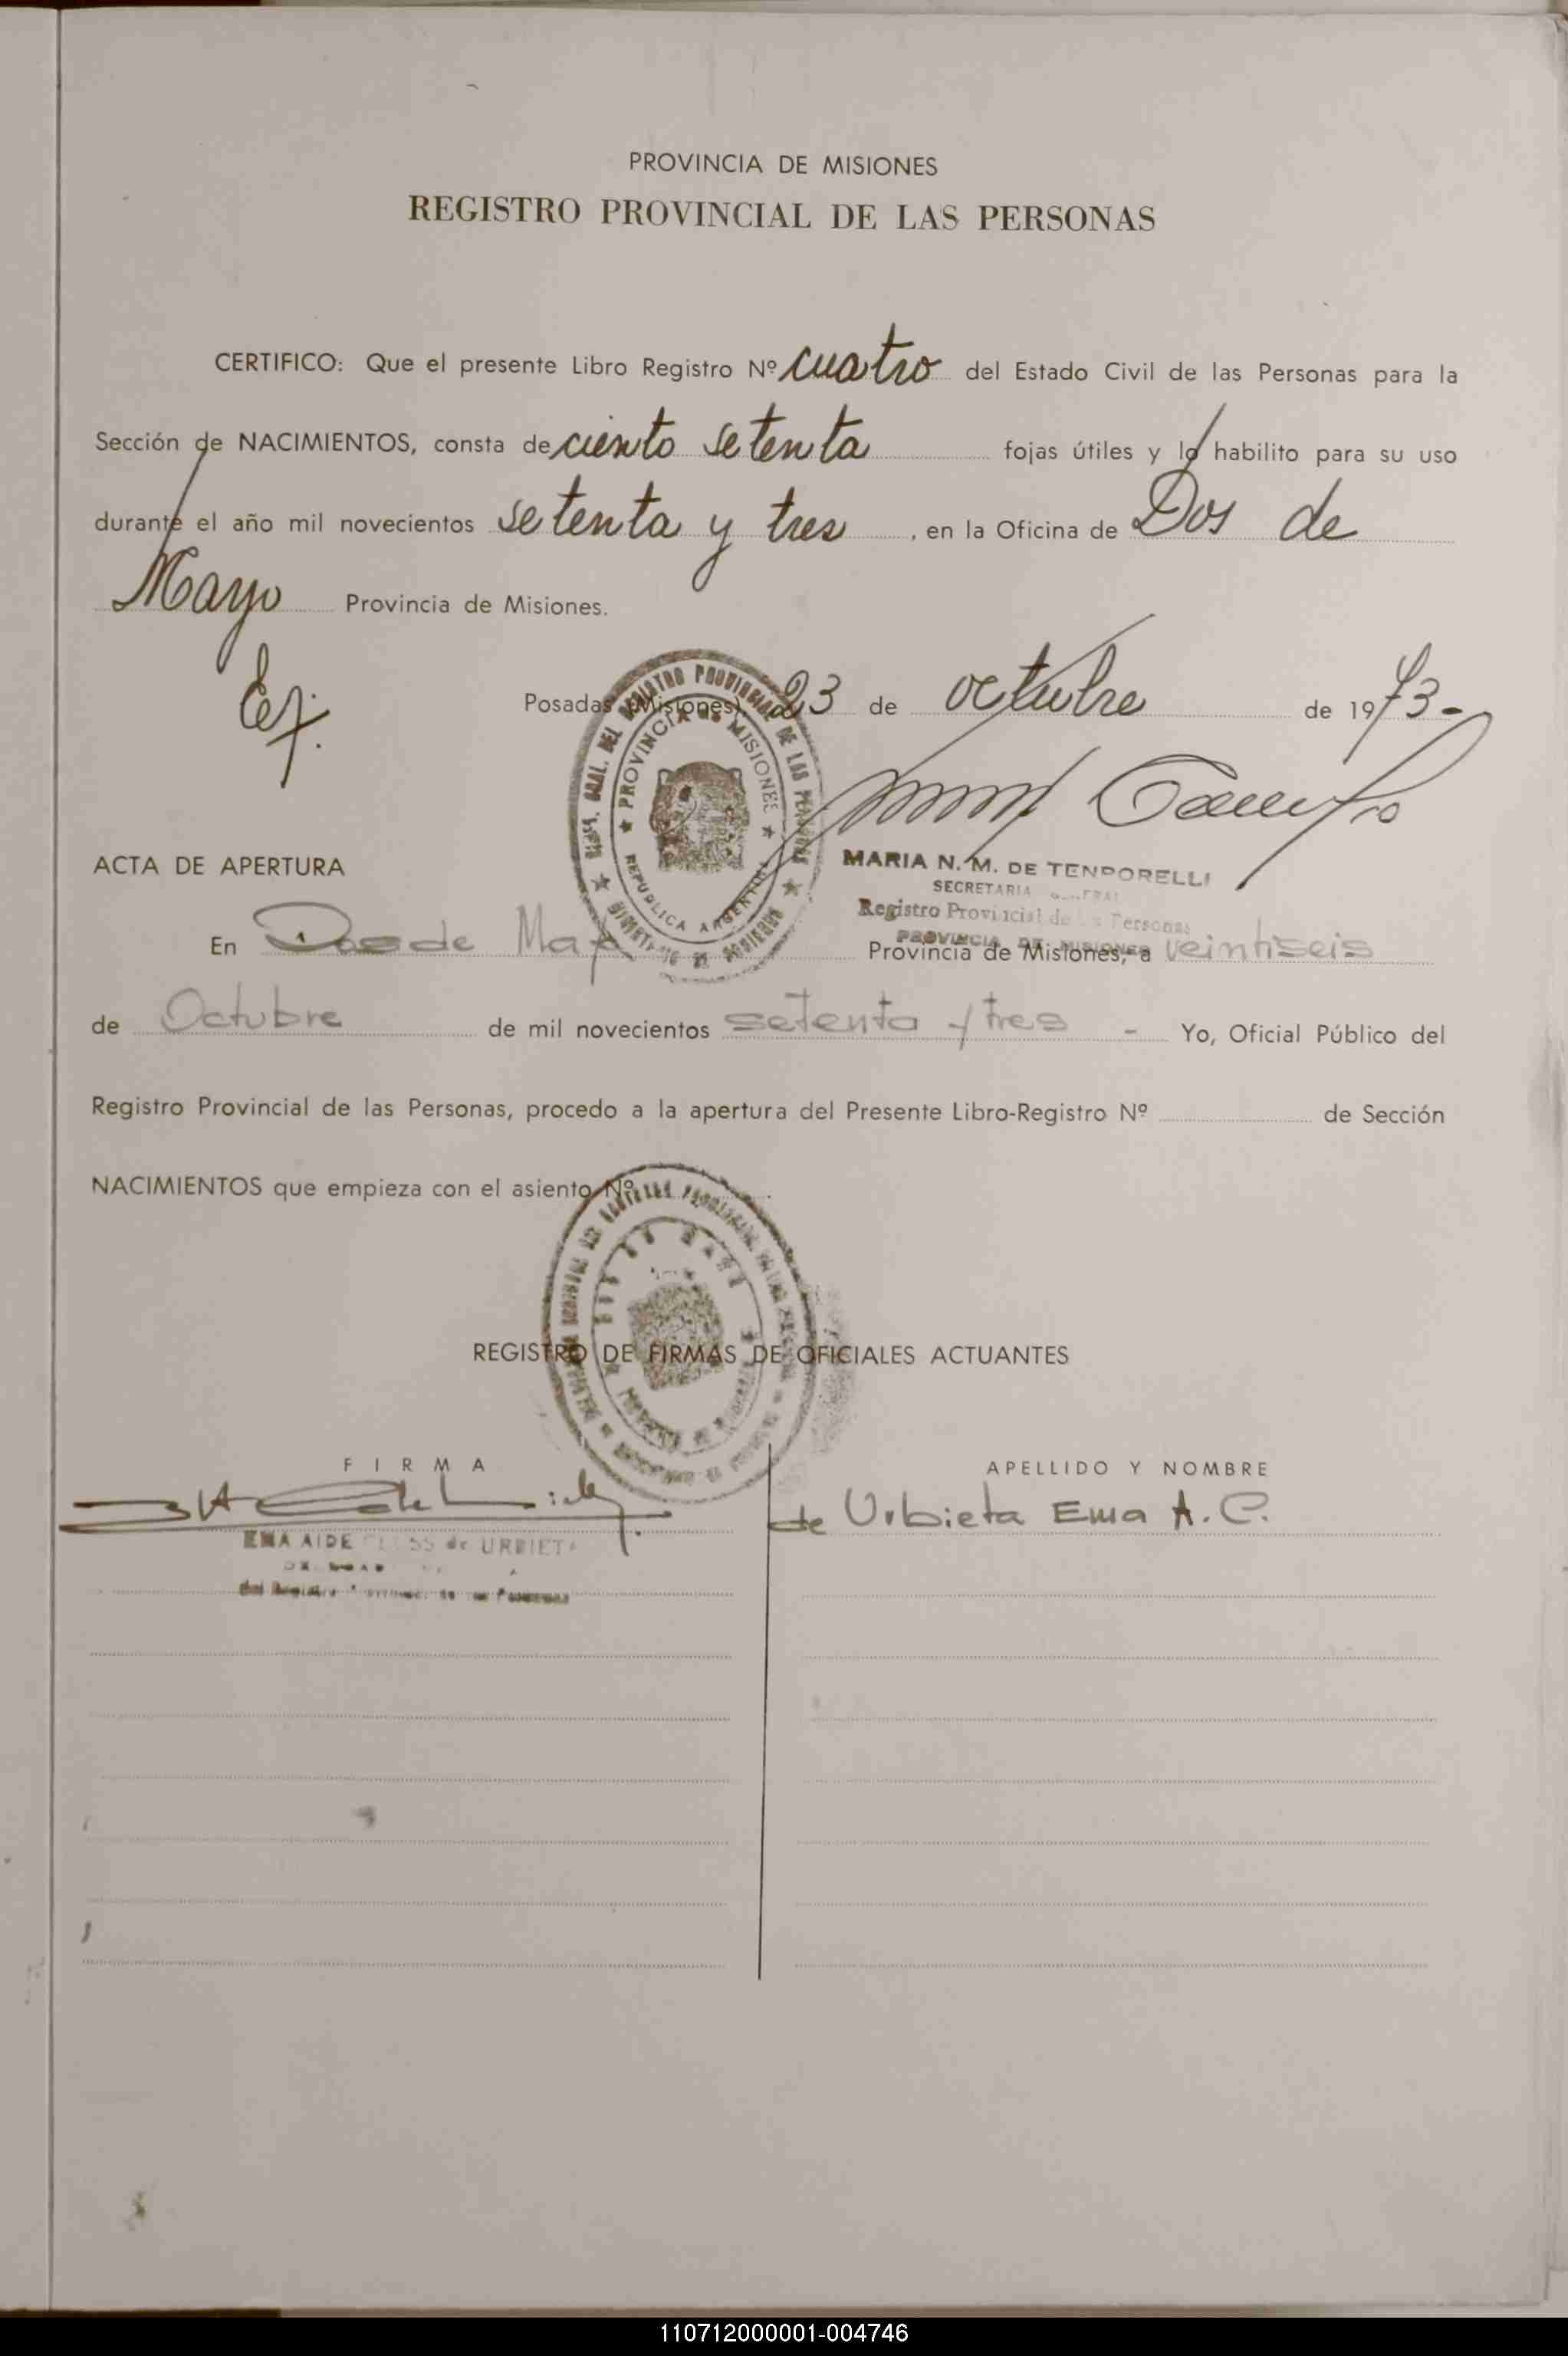 PROVINCIA DE MISIONES
REGISTRO PROVINCIAL DE LAS PERSONAS
CERTIFICO: Que el presente Libro Registro Nº cuatro del Estado Civil de las Personas para la
Sección de NACIMIENTOS, consta de ciento setenta fojas útiles y lo habilito para su uso
durante el año mil novecientos setenta y tres, en la Oficina de Dos de
Mayo Provincia de Misiones.
Posadas (Misiones), 23 de octubre de 1973-
PROVINCIA DE MISIONES
REPUBLICA ARGENTINA
MARIA N. M. DE TENPORELLI
SECRETARIA GENERAL
Registro Provincial de las Personas
PROVINCIA DE MISIONES
ACTA DE APERTURA
En Dos de Mayo Provincia de Misiones, a veintiseis
de Octubre de mil novecientos setenta y tres - Yo, Oficial Público del
Registro Provincial de las Personas, procedo a la apertura del Presente Libro-Registro Nº de Sección
NACIMIENTOS que empieza con el asiento Nº
REGISTRO DE FIRMAS DE OFICIALES ACTUANTES
FIRMA APELLIDO Y NOMBRE
de Urbieta Ema A. C.
EMA AIDE de URBIETA
110712000001-004746